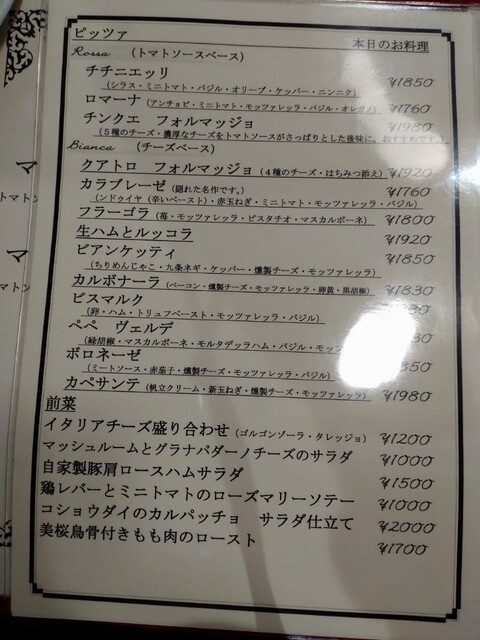 ピッツァ
本日のお料理
Rossa （トマトソースベース）
チチニエッリ ¥1850
（シラス・ミニトマト・バジル・オリーブ・ケッパー・ニンニク）
ロマーナ（アンチョビ・ミニトマト・モッツァレッラ・バジル・オレガノ） ¥1760
チンクエ フォルマッジョ ¥1980
（５種のチーズ・濃厚なチーズをトマトソースがさっぱりとした後味に。おすすめです）
Bianca （チーズベース）
クアトロ フォルマッジョ（４種のチーズ・はちみつ添え） ¥1920
カラブレーゼ（隠れた名作です。） ¥1760
（ンドゥイヤ（辛いペースト）・赤玉ねぎ・ミニトマト・モッツァレッラ・バジル）
フラーゴラ（苺・モッツァレッラ・ピスタチオ・マスカルポーネ） ¥1800
生ハムとルッコラ ¥1920
ビアンケッティ ¥1850
（ちりめんじゃこ・九条ネギ・ケッパー・燻製チーズ・モッツァレッラ）
カルボナーラ（ベーコン・燻製チーズ・モッツァレッラ・卵黄・黒胡椒） ¥1830
ビスマルク
（卵・ハム・トリュフペースト・モッツァレッラ・バジル）
ペペ ヴェルデ
（緑胡椒・マスカルポーネ・モルタデッラハム・バジル・モッ
ボロネーゼ
（ミートソース・赤茄子・燻製チーズ・モッツァレッラ・バジル）
カペサンテ（帆立クリーム・新玉ねぎ・燻製チーズ・モッツァレッラ） ¥1980
前菜
イタリアチーズ盛り合わせ（ゴルゴンゾーラ・タレッジョ） ¥1200
マッシュルームとグラナパダーノチーズのサラダ ¥1000
自家製豚肩ロースハムサラダ ¥1500
鶏レバーとミニトマトのローズマリーソテー ¥1000
コショウダイのカルパッチョ サラダ仕立て ¥2000
美桜鳥骨付きもも肉のロースト ¥1700